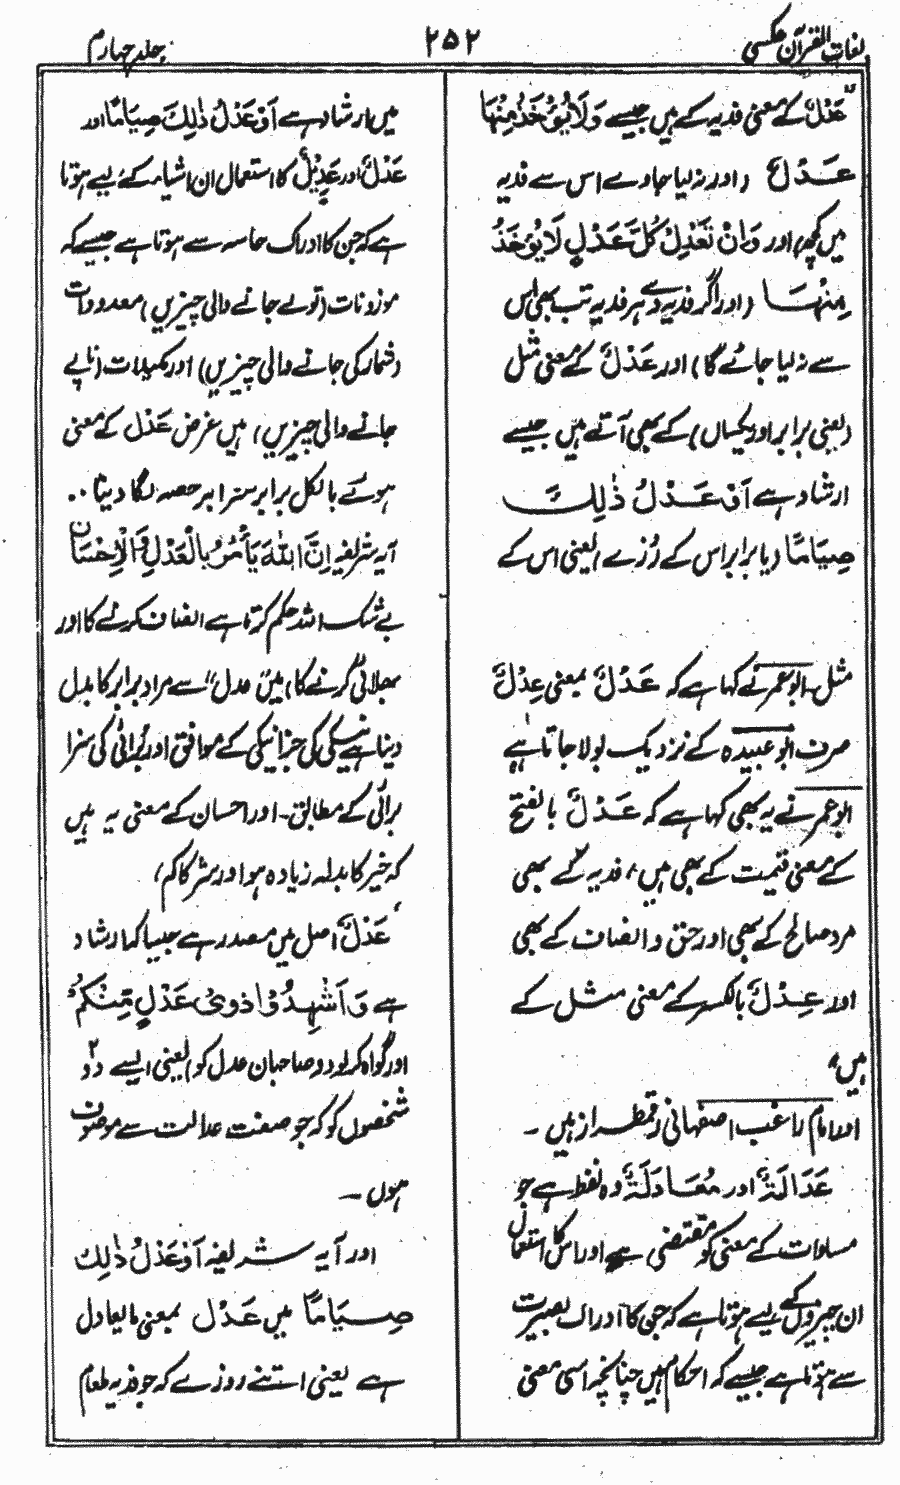 لغات القرآن عکسی
۲۵۲
جلد چہارم
عَدْلٌ کے معنی فدیہ کے ہیں جیسے وَلَا یُؤْخَذُ مِنْہَا
عَدْلٌ (اور نہ لیا جاوے اس سے فدیہ
میں کچھ) اور وَاِنْ تَعْدِلْ کُلَّ عَدْلٍ لَا یُؤْخَذُ
مِنْہَا (اور اگر فدیہ دے ہر فدیہ تب بھی اس
سے نہ لیا جائے گا) اور عَدْلٌ کے معنی مثل
(یعنی برابر اور یکساں) کے بھی آتے ہیں جیسے
ارشاد ہے اَوْ عَدْلُ ذٰلِکَ
صِیَامًا (یا برابر اس کے رُزے) یعنی اس کے
مثل۔ ابو عمر نے کہا ہے کہ عَدْلٌ بمعنی عِدْلٌ
صرف ابو عبیدہ کے نزدیک بولا جاتا ہے
ابو عمر نے یہ بھی کہا ہے کہ عَدْلٌ بالفتح
کے معنی قیمت کے بھی ہیں، فدیہ کے بھی
مرد صالح کے بھی اور حق و انصاف کے بھی
اور عِدْلٌ بالکسر کے معنی مثل کے
ہیں،
اور امام راغب اصفہانی رقمطراز ہیں ۔
عَدَالَۃٌ اور مُعَادَلَۃٌ وہ لفظ ہے جو
مساوات کے معنی کو مقتضی ہے اور اس کا استعمال
ان چیزوں کے لیے ہوتا ہے کہ جن کا ادراک بصیرت
سے ہوتا ہے جیسے کہ احکام ہیں چنانچہ اسی معنی
میں ارشاد ہے اَوْ عَدْلُ ذٰلِکَ صِیَامًا اور
عَدْلٌ اور عَدِیْلٌ کا استعمال ان اشیاء کے لیے ہوتا
ہے کہ جن کا ادراک حاسہ سے ہوتا ہے جیسے کہ
موزونات (تولے جانے والی چیزیں) معدودات
(شمار کی جانے والی چیزیں) اور مکیلات (ناپے
جانے والی چیزیں) ہیں غرض عَدْل کے معنی
ہوئے بالکل برابر سرابر حصہ لگا دینا ..
آیہ شریفہ اِنَّ اللّٰہَ یَأْمُرُ بِالْعَدْلِ وَالْاِحْسَانِ
بے شک اللہ حکم کرتا ہے انصاف کرنے کا اور
بھلائی کرنے کا) میں عدل سے مراد برابر کا بدل
دینا ہے نیکی کی جزا نیکی کے موافق اور بُرائی کی سزا
برائی کے مطابق۔ اور احسان کے معنی یہ ہیں
کہ خیر کا بدلہ زیادہ ہو اور شر کا کم،
عَدْلٌ اصل میں مصدر ہے جیسا کہ ارشاد
ہے وَاَشْہِدُوْا ذَوَیْ عَدْلٍ مِّنْکُمْ
اور گواہ کر لو دو صاحبان عدل کو) یعنی ایسے دو ۲
شخصوں کو کہ جو صفت عدالت سے موصوف
ہوں ۔
اور آیہ شریفہ اَوْ عَدْلُ ذٰلِکَ
صِیَامًا میں عَدْل بمعنی مایعادل
ہے یعنی اتنے روزے کہ جو فدیہ طعام